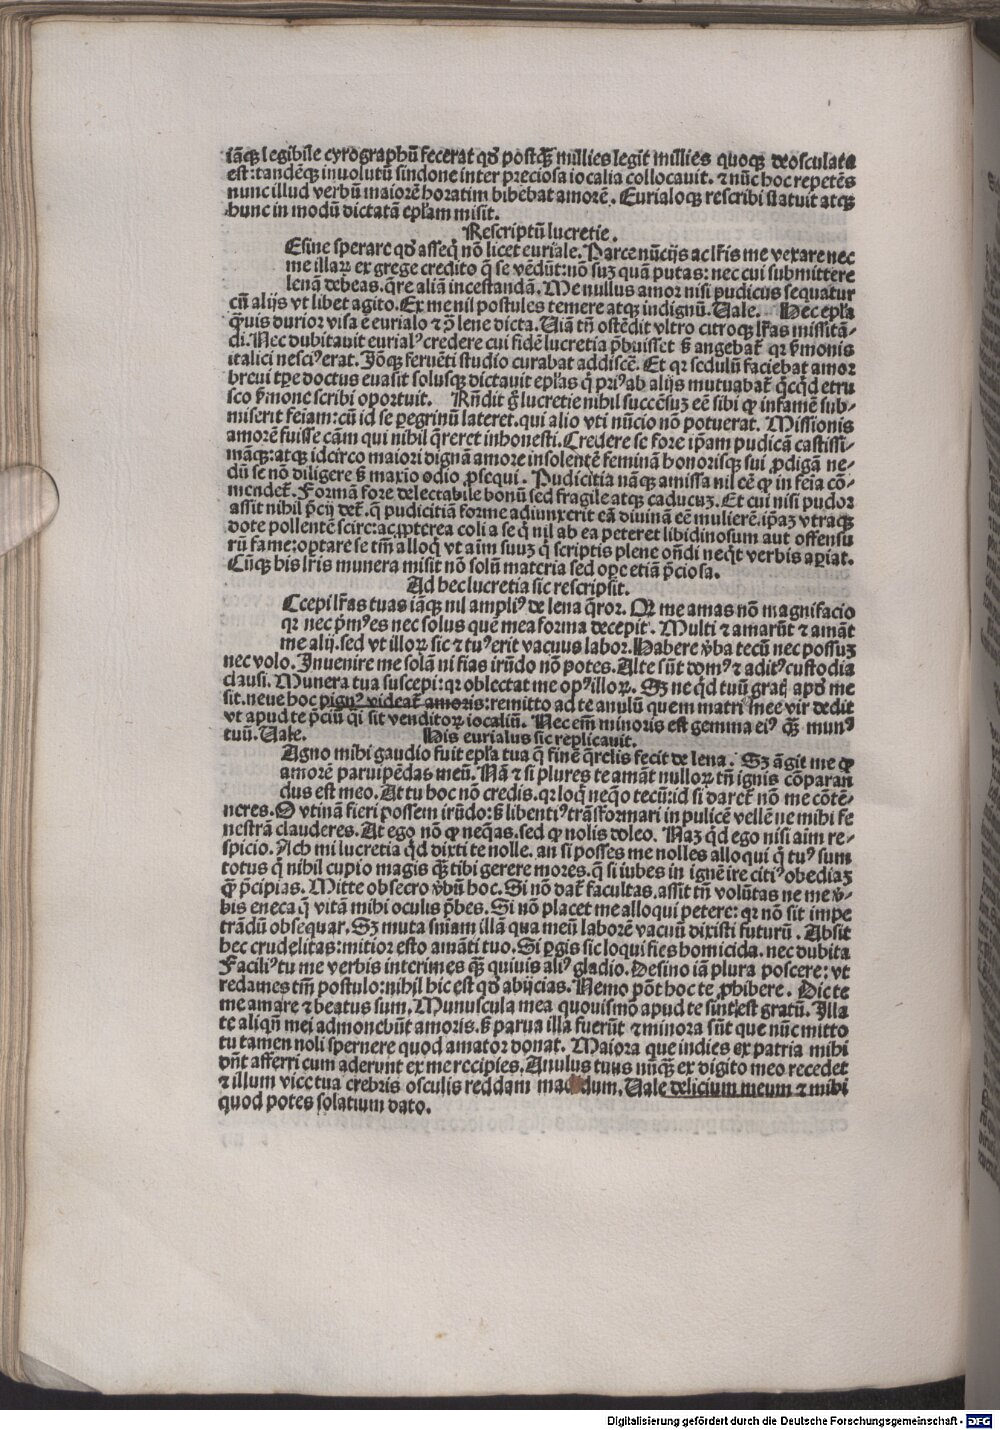 iãq legibile cyrographũ fecerat qd' postq̃ millies legit millies quoq deosculata
est: tandẽq inuolutũ sindone inter preciosa iocalia collocauit. ⁊ nũc hoc repetẽs
nunc illud verbũ maiorẽ horatim bibebat amorẽ. Eurialoq rescribi statuit atq
hunc in modũ dictatã epl'am misit.
Rescriptũ lucretie.
Esine sperare qd' asseq̃ nõ licet euriale. Parce nũcijs ac lr̃is me vexare nec
me illaꝝ ex grege credito q̃ se vẽdũt: nõ suꝫ quã putas: nec cui submittere
lenã debeas. q̃re aliã incestandã. Me nullus amor nisi pudicus sequatur
cũ alijs vt libet agito. Ex me nil postules temere atq indignũ. Uale. Hec epl'a
q̃uis durior visa ẽ eurialo ⁊ ꝓ lene dicta. Uiã tñ ostẽdit vltro citroq lr̃as missitã-
di. Nec dubitauit eurial' credere cui fidẽ lucretia p̃buisset s̃ angebat' qꝛ s̃monis
italici nesci'erat. Jõq feruẽti studio curabat addiscẽ. Et qꝛ sedulũ faciebat amor
breui tꝑe doctus euasit solusq dictauit epl'as q̃ pri'ab alijs mutuabat' q̃cq̃d etru
sco s̃mone scribi oportuit. Rñdit g̃ lucretie nihil succẽsuꝫ eẽ sibi ꝙ infamẽ sub-
miserit feiam: cũ id se ꝑegrinũ lateret. qui alio vti nũcio nõ potuerat. Missionis
amorẽ fuisse cãm qui nihil q̃reret inhonesti. Credere se fore ip̃am pudicã castissi-
mãq: atq idcirco maiori dignã amore insolentẽ feminã honorisq sui ꝓdigã ne-
dũ se nõ diligere s̃ maxĩo odio ꝓsequi. Pudicitia nãq amissa nil eẽ ꝙ in feĩa cõ-
mendet'. Formã fore delectabile bonũ sed fragile atq caducuꝫ. Et cui nisi pudor
assit nihil p̃cij det'. q̃ pudicitiã forme adiunxerit eã diuinã eẽ mulierẽ. ip̃aꝫ vtraq
dote pollentẽ scire: ac ꝓpterea coli a se q̃ nil ab ea peteret libidinosum aut offensu
rũ fame: optare se tm̃ alloq̃ vt aĩm suuꝫ q̃ scriptis plene oñdi neq̃t verbis aꝑiat.
Cũq his lr̃is munera misit nõ solũ materia sed oꝑe etiã p̃ciosa.
Ad hec lucretia sic rescripsit.
Ccepi lr̃as tuas iãq nil ampli' de lena q̃ror. Qꝛ me amas nõ magnifacio
qꝛ nec p̃m'es nec solus quẽ mea forma decepit. Multi ⁊ amarũt ⁊ amãt
me alij. sed vt illoꝝ sic ⁊ tu'erit vacuus labor. Habere ṽba tecũ nec possuꝫ
nec volo. Inuenire me solã ni fias irũdo nõ potes. Alte sũt dom' ⁊ adit' custodia
clausi. Munera tua suscepi: qꝛ oblectat me op'illoꝝ. Sꝫ ne q̃d tuũ grat̃ apd' me
sit. neue hoc pign' videat' amoris: remitto ad te anulũ quem matri mee vir dedit
vt apud te p̃ciũ q̃i sit venditoꝝ iocaliũ. Nec em̃ minoris est gemma ei' q̃ mun'
tuũ. Uale. His eurialus sic replicauit.
Agno mihi gaudio fuit epl'a tua q̃ finẽ q̃relis fecit de lena. Sꝫ ãgit me ꝙ
amorẽ paruipẽdas meũ. Nã ⁊ si plures te amãt nulloꝝ tñ ignis cõparan
dus est meo. At tu hoc nõ credis. qꝛ loq̃ neq̃o tecũ: id si daret' nõ me cõtẽ-
neres. O vtinã fieri possem irũdo: s̃ libenti'trãsformari in pulicẽ vellẽ ne mihi fe
nestrã clauderes. At ego nõ ꝙ neq̃as. sed ꝙ nolis doleo. Naꝫ q̃d ego nisi aĩm re-
spicio. Ach mi lucretia q̃d dixti te nolle. an si posses me nolles alloqui q̃ tu' sum
totus q̃ nihil cupio magis q̃ tibi gerere mores. q̃ si iubes in ignẽ ire citi' obediaꝫ
q̃ p̃cipias. Mitte obsecro ṽbũ hoc. Si nõ dat' facultas. assit tñ volũtas ne me ṽ-
bis eneca q̃ vitã mihi oculis p̃bes. Si nõ placet me alloqui petere: qꝛ nõ sit impe
trãdũ obsequar. Sꝫ muta sñiam illã qua meũ laborẽ vacuũ dixisti futurũ. Absit
hec crudelitas: mitior esto amãti tuo. Si ꝑgis sic loqui fies homicida. nec dubita
Facili'tu me verbis interimes q̃ quiuis ali' gladio. Desino iã plura poscere: vt
redames tm̃ postulo: nihil hic est qd' abijcias. Nemo põt hoc te ꝓhibere. Dic te
me amare ⁊ beatus sum. Munuscula mea quouismõ apud te sint est gratũ. Illa
te aliqñ mei admonebũt amoris. s̃ parua illa fuerũt ⁊ minora sũt que nũc mitto
tu tamen noli spernere quod amator donat. Maiora que indies ex patria mihi
dñt afferri cum aderunt ex me recipies. Anulus tuus nũq̃ ex digito meo recedet
⁊ illum vice tua crebris osculis reddam madidum. Uale delicium meum ⁊ mihi
quod potes solatium dato.
Digitalisierung gefördert durch die Deutsche Forschungsgemeinschaft - DFG